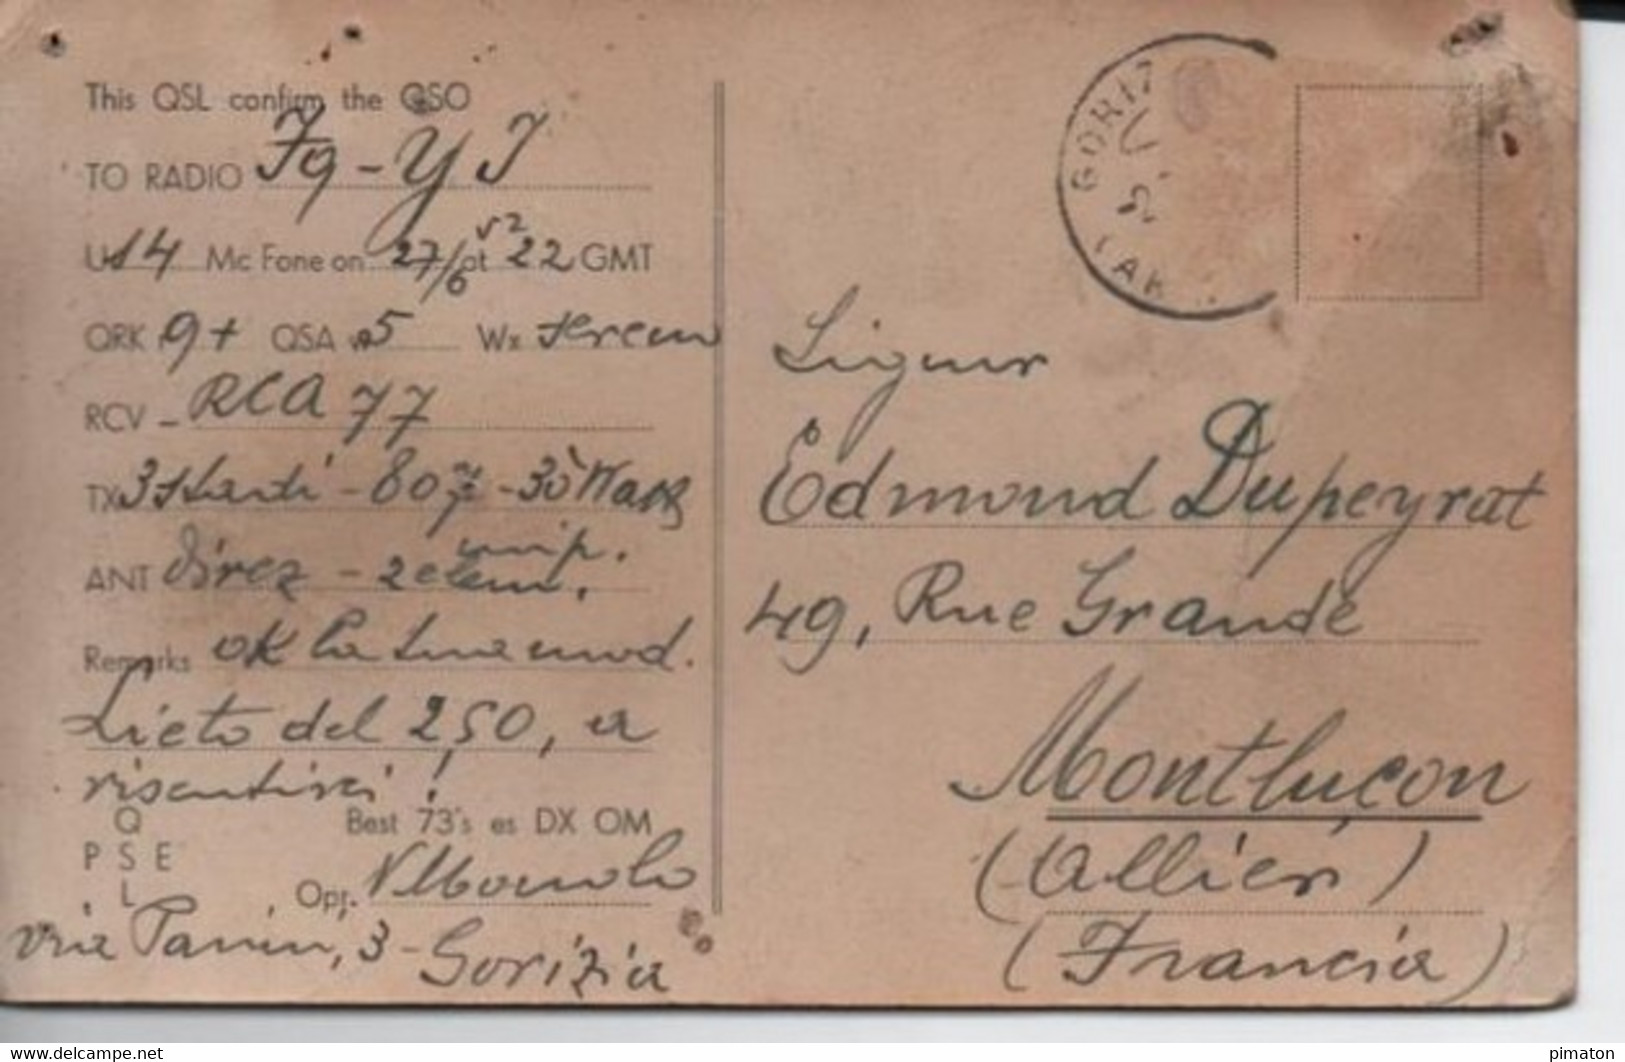 This QSL confirm the QSO
TO RADIO F9-YJ
U 14 Mc Fone on 27/6 52 at 22 GMT
QRK 9+ QSA 5 Wx sereno
RCV - RCA 77
TX 3 stadi - 807 - 30 Watts
ANT direz - 2 elem.
Remarks OK la tua mod.
Lieto del 2,50, a
risentirci!
Q
Best 73's es DX OM
P S E
L
Opr.
via Panini, 3 - Gorizia
GORIZ
Signor
Edmond Dupeyrat
49, Rue Grande
Montluçon
(Allier)
(Francia)
www.delcampe.net
pimaton